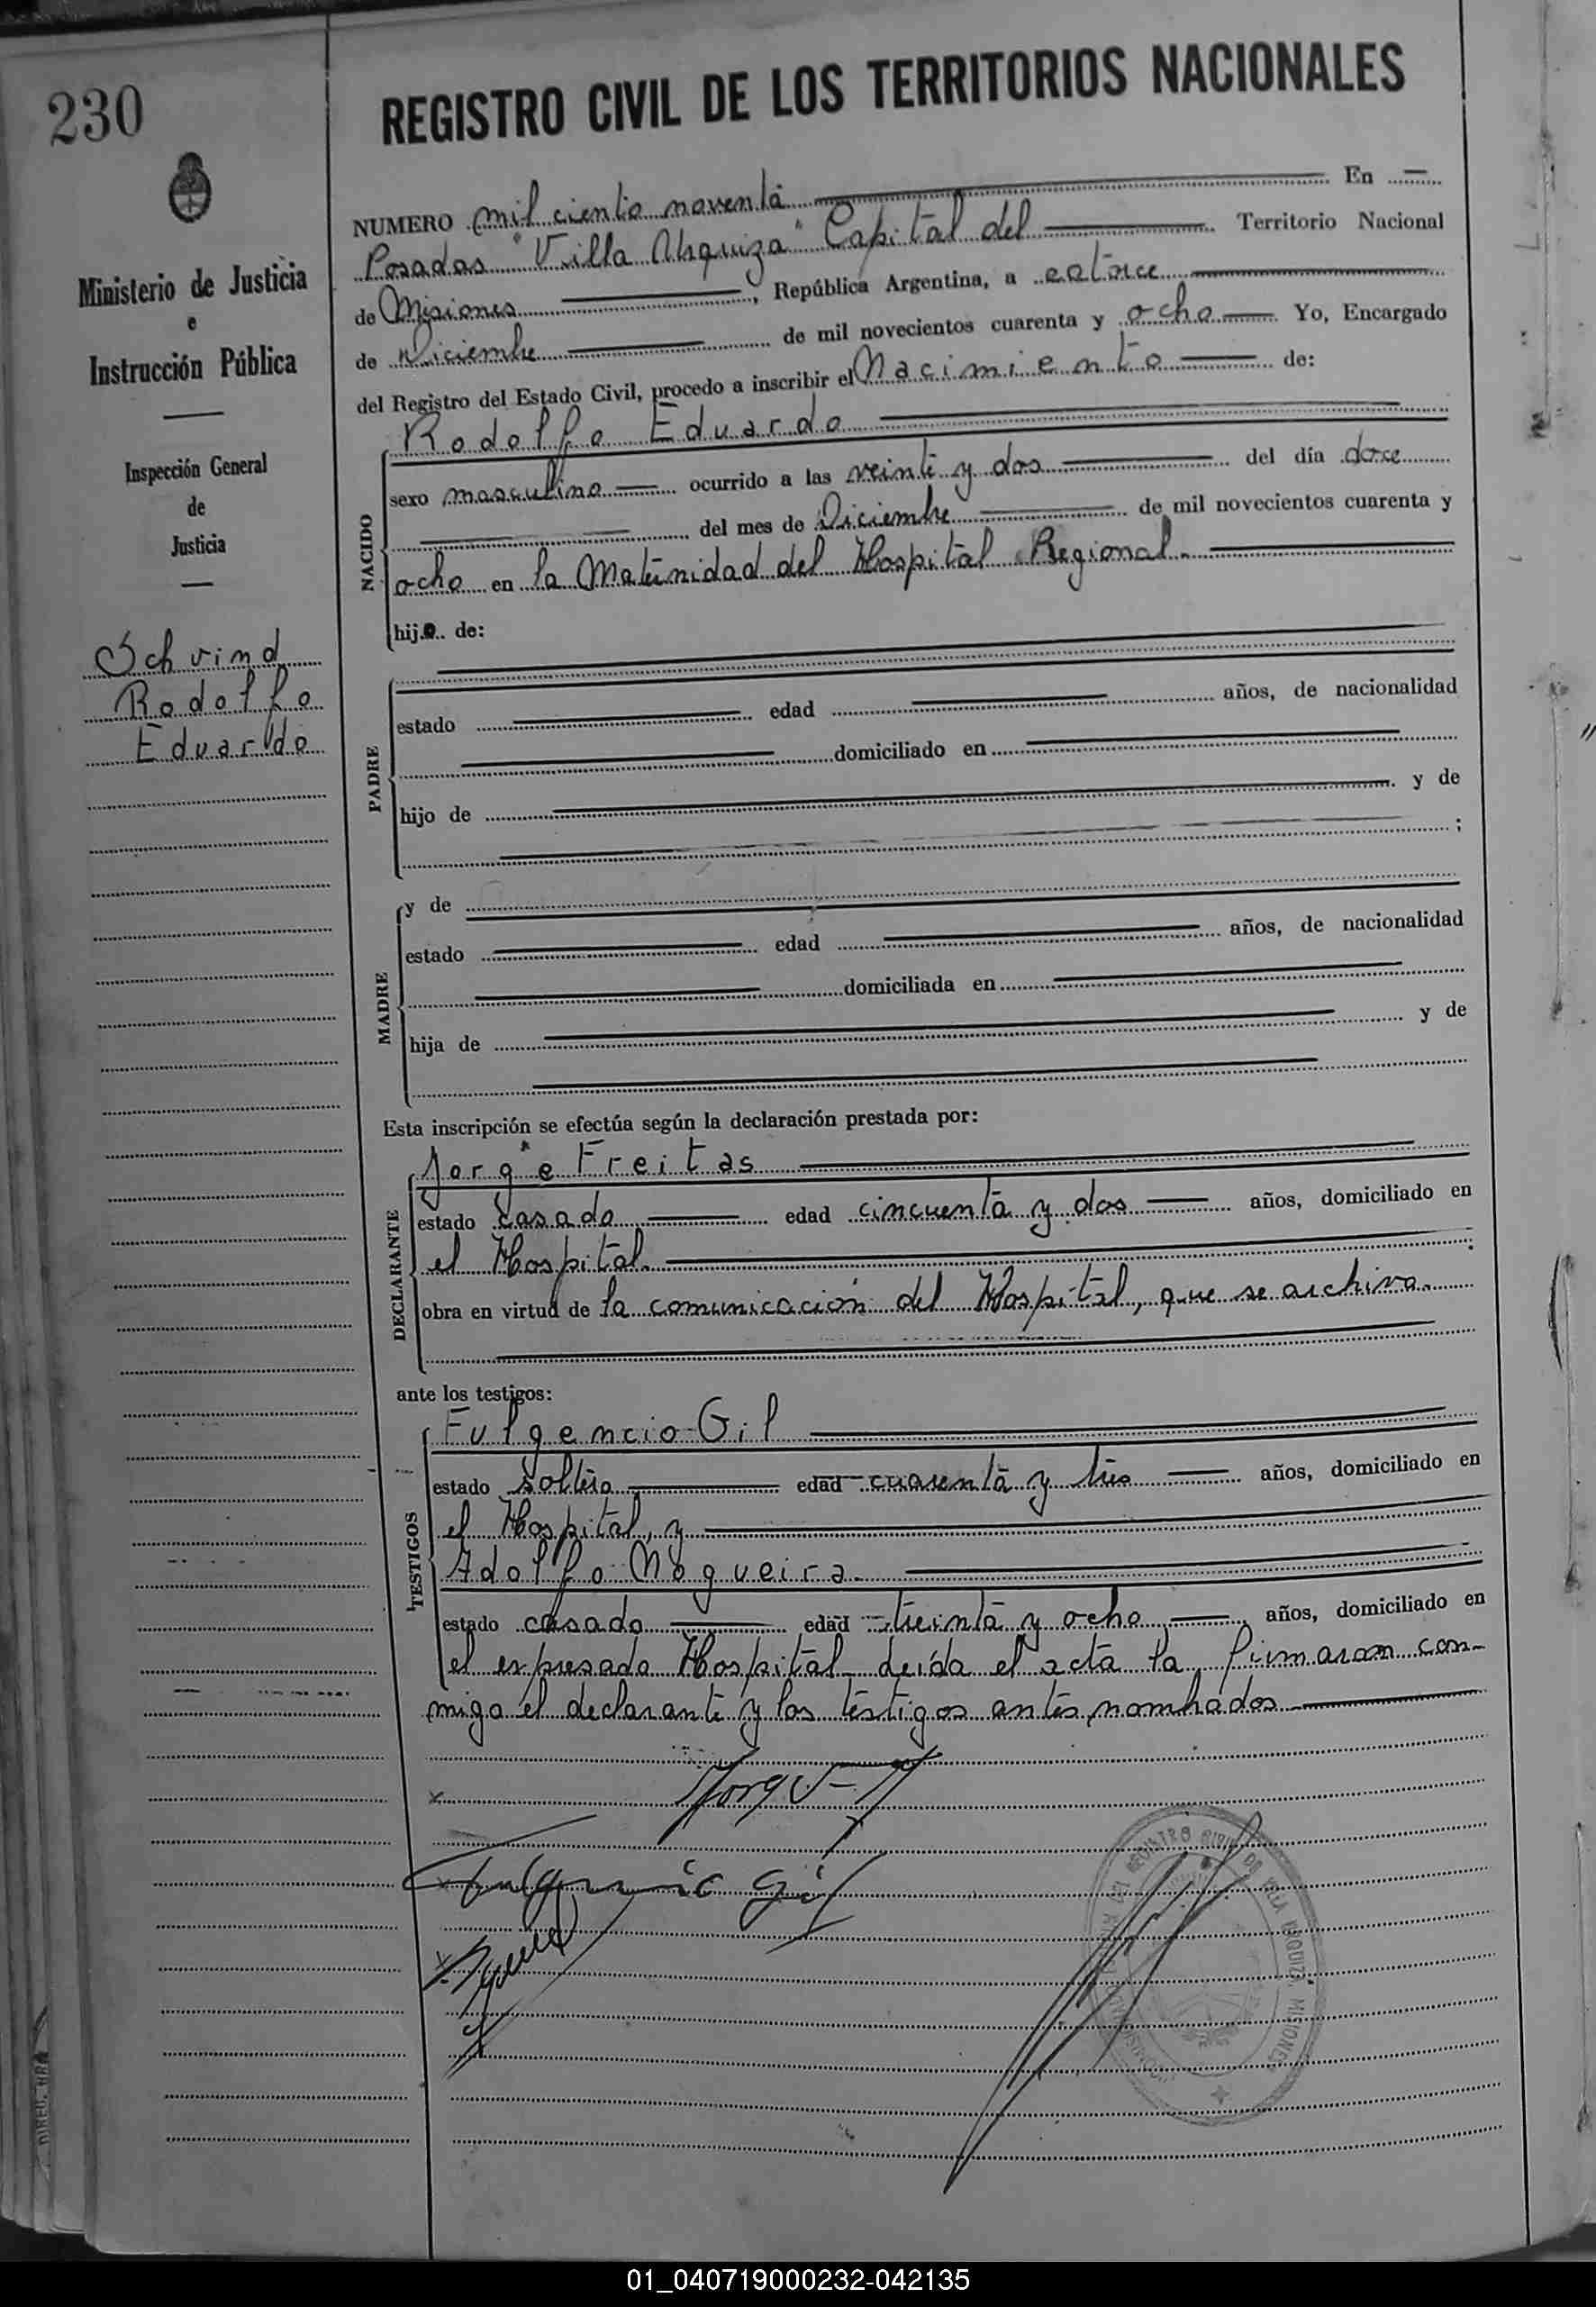 230
REGISTRO CIVIL DE LOS TERRITORIOS NACIONALES
Ministerio de Justicia
e
Instrucción Pública
Inspección General
de
Justicia
Schvind
Rodolfo
Eduardo
NUMERO mil ciento noventa En
Posadas "Villa Urquiza" Capital del Territorio Nacional
de Misiones, República Argentina, a catorce
de Diciembre de mil novecientos cuarenta y ocho Yo, Encargado
del Registro del Estado Civil, procedo a inscribir el Nacimiento de:
Rodolfo Eduardo
NACIDO
sexo masculino ocurrido a las veinte y dos del día doce
del mes de Diciembre de mil novecientos cuarenta y
ocho en la Maternidad del Hospital Regional.
hijo de:
PADRE
estado edad años, de nacionalidad
domiciliado en
hijo de y de
;
MADRE
y de
estado edad años, de nacionalidad
domiciliada en
hija de y de
Esta inscripción se efectúa según la declaración prestada por:
Jorge Freitas
DECLARANTE
estado casado edad cincuenta y dos años, domiciliado en
el Hospital. ;
obra en virtud de la comunicación del Hospital, que se archiva.
ante los testigos:
Fulgencio Gil
TESTIGOS
estado soltero edad cuarenta y tres años, domiciliado en
el Hospital, y
Adolfo Nogueira.
estado casado edad treinta y ocho, años, domiciliado en
el expresado Hospital leída el acta la firmaron con-
migo el declarante y los testigos antes nombrados
Fulgencio Gil
REGISTRO CIVIL DE VILLA URQUIZA MISIONES
01_040719000232-042135